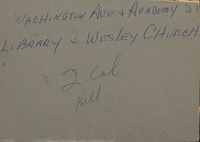 WACHINGTON AVE & ACADEMY ST
LIBRARY & WESLEY CHURCH
2 Col
Bell